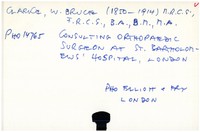 CLARKE, W. BRUCE (1850-1914) M.R.C.S.,
F.R.C.S., B.A., B.M., M.A.
PHO 14765 CONSULTING ORTHOPAEDIC
SURGEON AT ST. BARTHOLOM-
EWS' HOSPITAL, LONDON
PHO ELLIOTT & FRY
LONDON